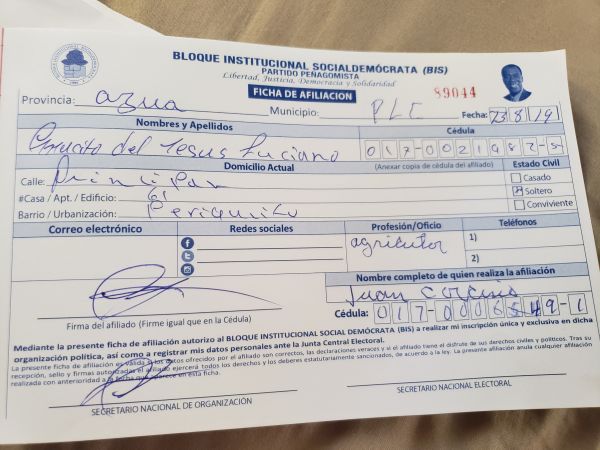 BLOQUE INSTITUCIONAL SOCIALDEMÓCRATA (BIS)
PARTIDO PEÑAGOMISTA
Libertad, Justicia, Democracia y Solidaridad
FICHA DE AFILIACION
89044
Provincia: azua Municipio: PLC Fecha: 23/8/19
Nombres y Apellidos
Cédula
del Jesus Luciano
017-0021987-5
Domicilio Actual
(Anexar copia de cédula del afiliado)
Estado Civil
Calle:
Casado
#Casa / Apt. / Edificio: 61
Soltero
Barrio / Urbanización: Periquito
Conviviente
Correo electrónico
Redes sociales
Profesión/Oficio
Teléfonos
agricultor
1)
2)
Nombre completo de quien realiza la afiliación
Juan
Cédula: 017-0006549-1
Firma del afiliado (Firme igual que en la Cédula)
Mediante la presente ficha de afiliación autorizo al BLOQUE INSTITUCIONAL SOCIAL DEMÓCRATA (BIS) a realizar mi inscripción única y exclusiva en dicha
organización política, así como a registrar mis datos personales ante la Junta Central Electoral.
La presente ficha de afiliación es válida si los datos ofrecidos por el afiliado son correctos, las declaraciones veraces y si el afiliado tiene el disfrute de sus derechos civiles y políticos. Tras su
recepción, sello y firmas autorizadas el afiliado ejercerá todos los derechos y los deberes estatutariamente sancionados, de acuerdo a la ley. La presente afiliación anula cualquier afiliación
realizada con anterioridad a la fecha que aparece en esta ficha.
SECRETARIO NACIONAL DE ORGANIZACIÓN
SECRETARIO NACIONAL ELECTORAL